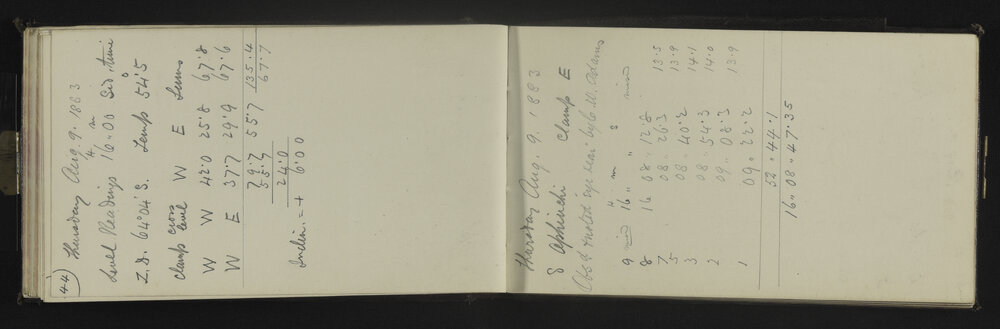 44
Thursday Aug. 9. 1883
Level Readings 16 h 00 m Sid. time
Z.D. 64° 04' S. Temp 54°.5
Clamp cross level W E Sums
W W 42.0 25.8 67.8
W E 37.7 29.9 67.6
79.7 55.7 135.4
55.7 67.7
24.0
Inclin. = + 6.00
Thursday Aug. 9. 1883
δ Ophiuchi Clamp E
Obsd. &noted eye &ear by C. W. Adams
9 missd 16 h " m " s missd
8 16 08 12.8
7.5 08 " 26.3 13.5
3 08 " 40.2 13.9
2 08 " 54.3 14.1
09 " 08.3 14.0
1 09 " 22.2 13.9
52 " 44.1
16 " 08 " 47.35